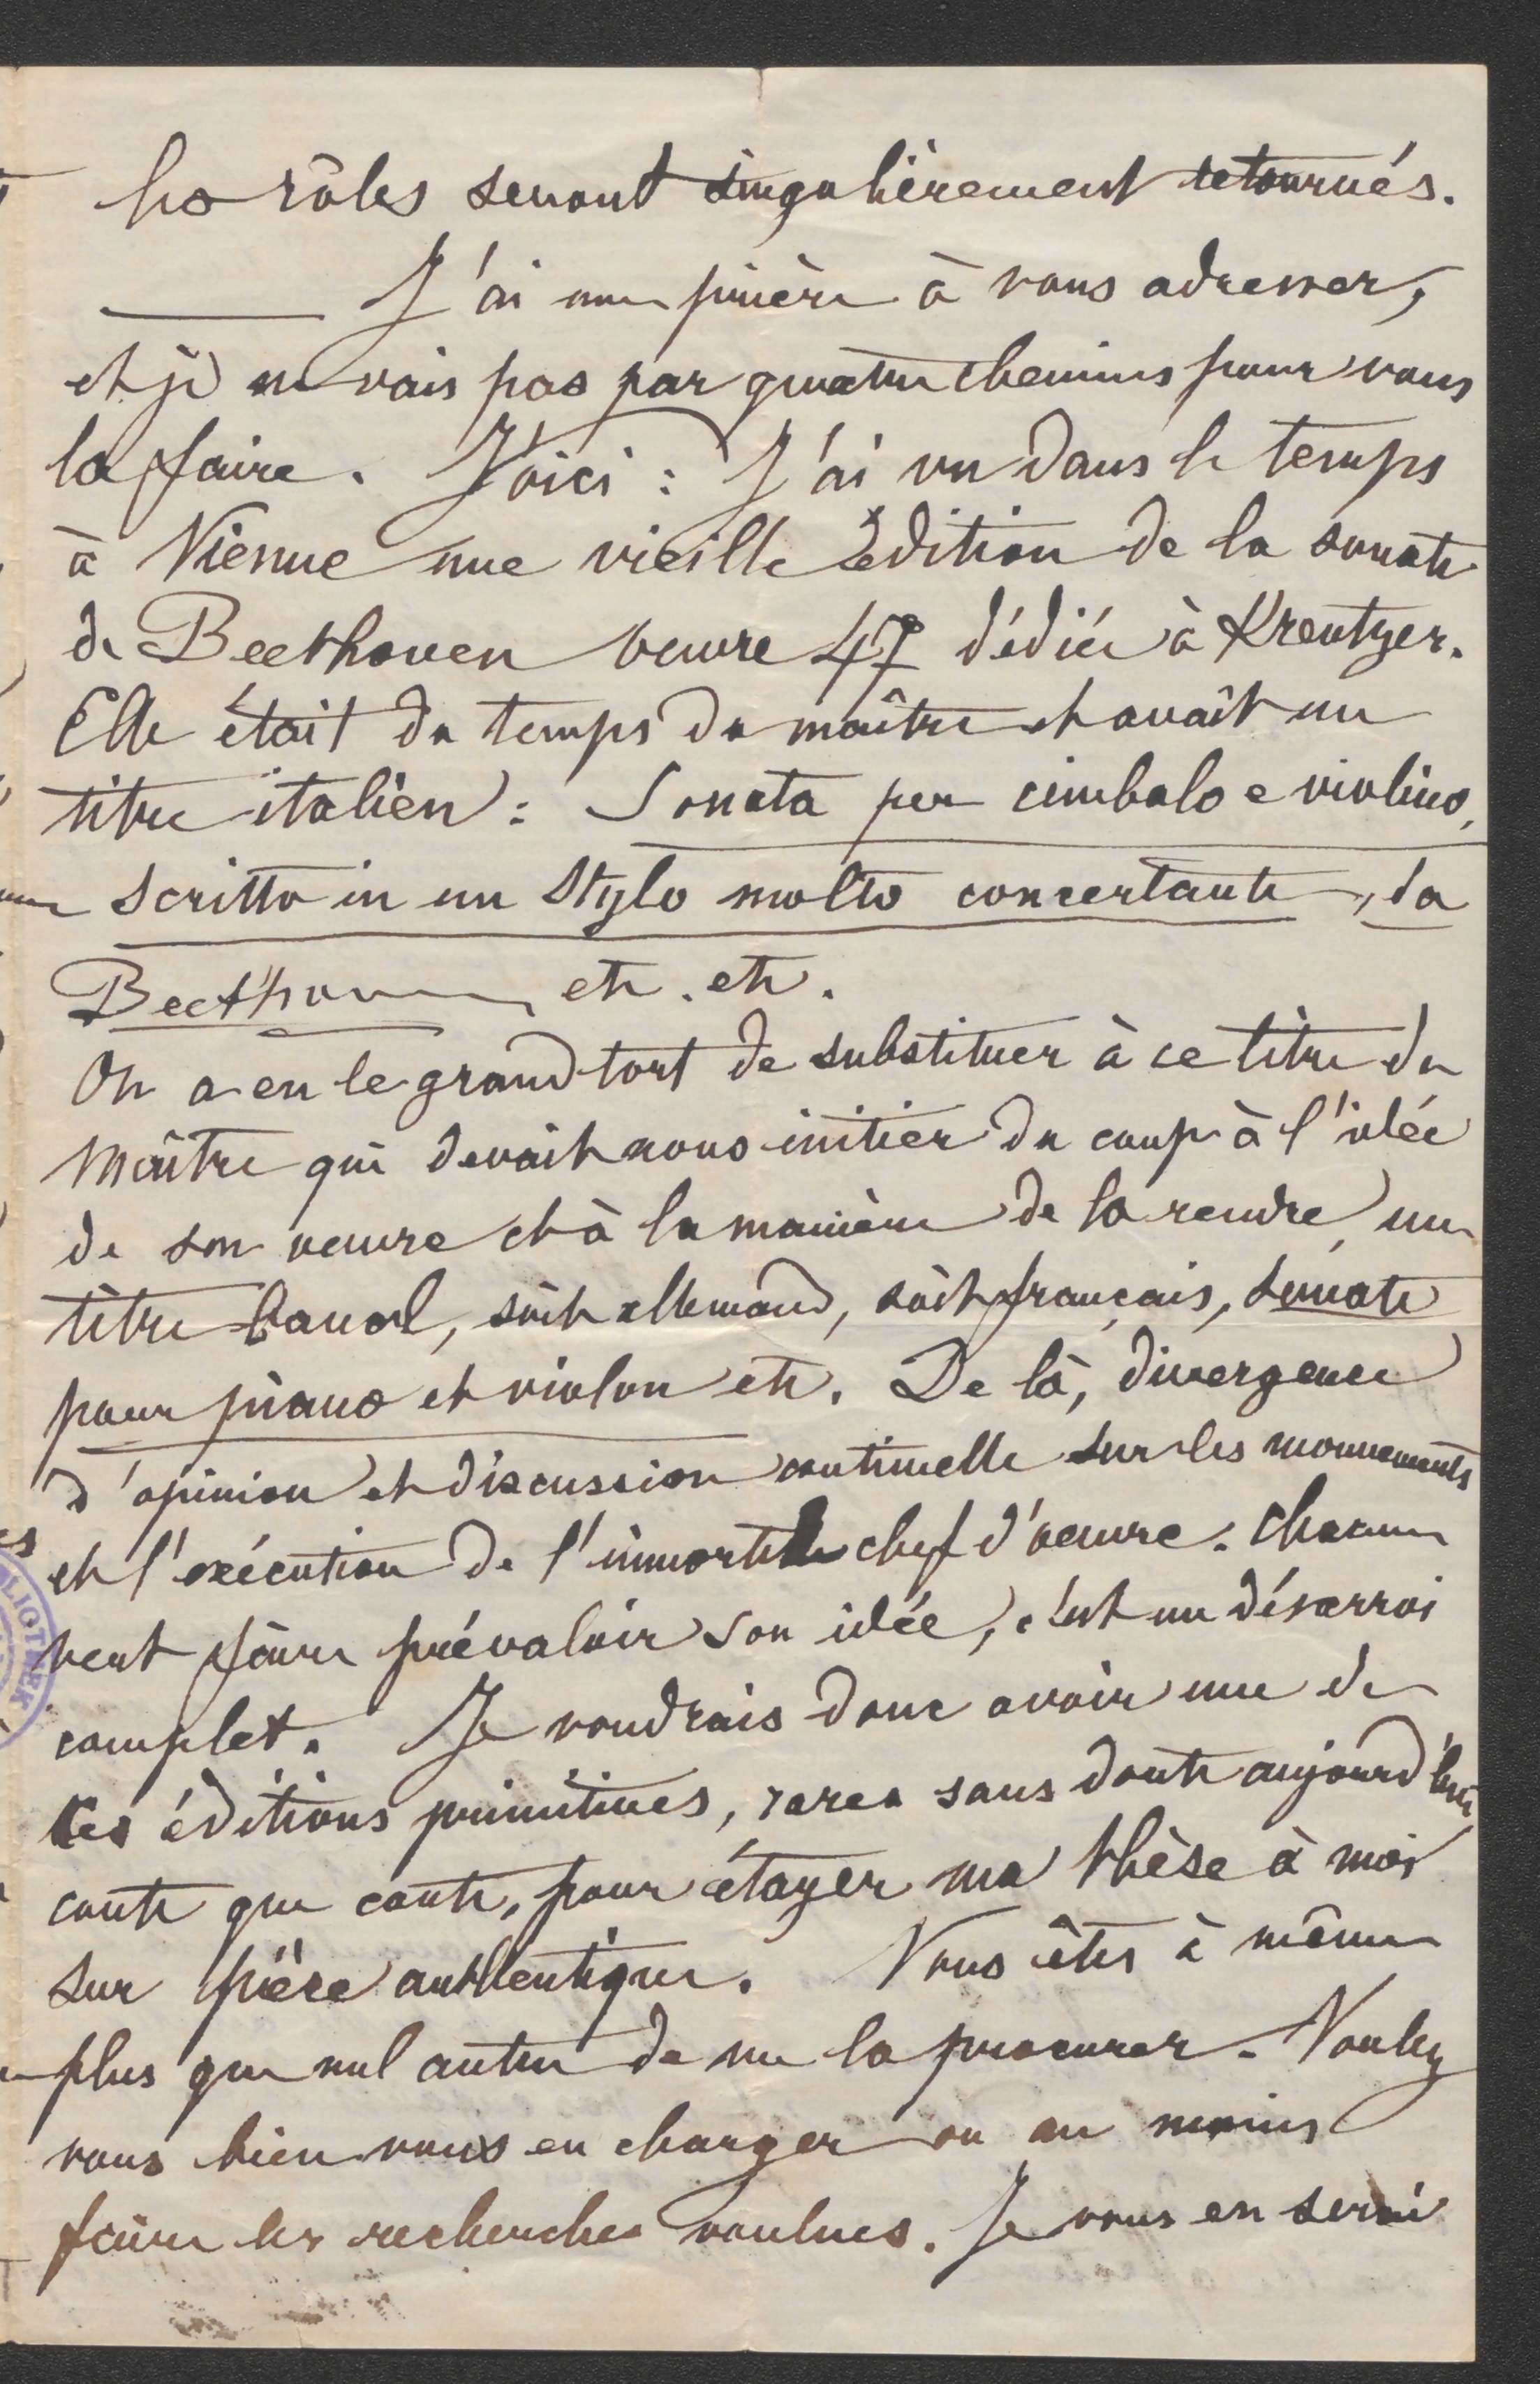 les rôles seront singulièrement retournés.
J'ai une prière à vous adresser,
et je ne vais pas par quatre chemins pour vous
la faire. Voici : J'ai vu dans le temps
à Vienne une vieille édition de la sonate
de Beethoven oeuvre 47 dédiée à Kreutzer.
Elle était du temps du maître et avait un
titre italien : Sonata per cimbalo e violino,
scritto in un stylo molto concertante, da
Beethoven etc. etc.
On a eu le grand tort de substituer à ce titre du
maître qui devait nous initier du coup à l'idée
de son oeuvre et à la manière de la rendre, un
titre banal, soit allemand, soit français, sonate
pour piano et violon etc. De là, divergence
d'opinion et discussion continuelle sur les mouvements
et l'exécution de l'immortel chef d'oeuvre. Chacun
veut faire prévaloir son idée, c'est un désarroi
complet. Je voudrais donc avoir une de
ces éditions primitives, rares sans doute aujourd'hui
coute que coute, pour étayer ma thèse à moi
sur pièce authentique. Vous êtes à même
plus que nul autre de me la procurer. Voulez
vous bien vous en charger ou au moins
faire les recherches voulues. Je vous en serai
LIOTHEK